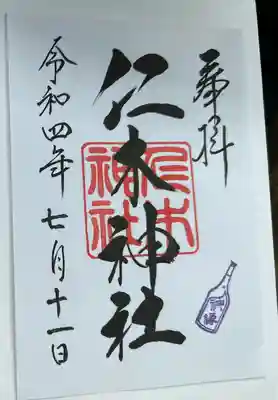 奉拝
仁木神社
仁木
神社
令和四年七月十一日